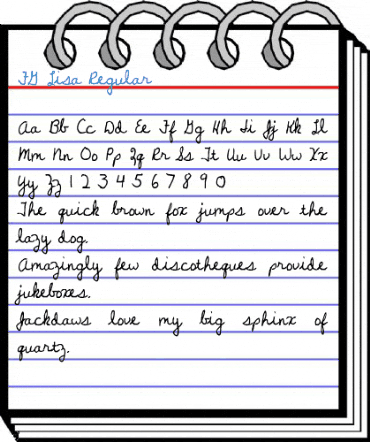 FG Lisa Regular
Aa Bb Cc Dd Ee Ff Gg Hh Ii Jj Kk Ll
Mm Nn Oo Pp Qq Rr Ss Tt Uu Vv Ww Xx
Yy Zz 1 2 3 4 5 6 7 8 9 0
The quick brown fox jumps over the
lazy dog.
Amazingly few discotheques provide
jukeboxes.
Jackdaws love my big sphinx of
quartz.